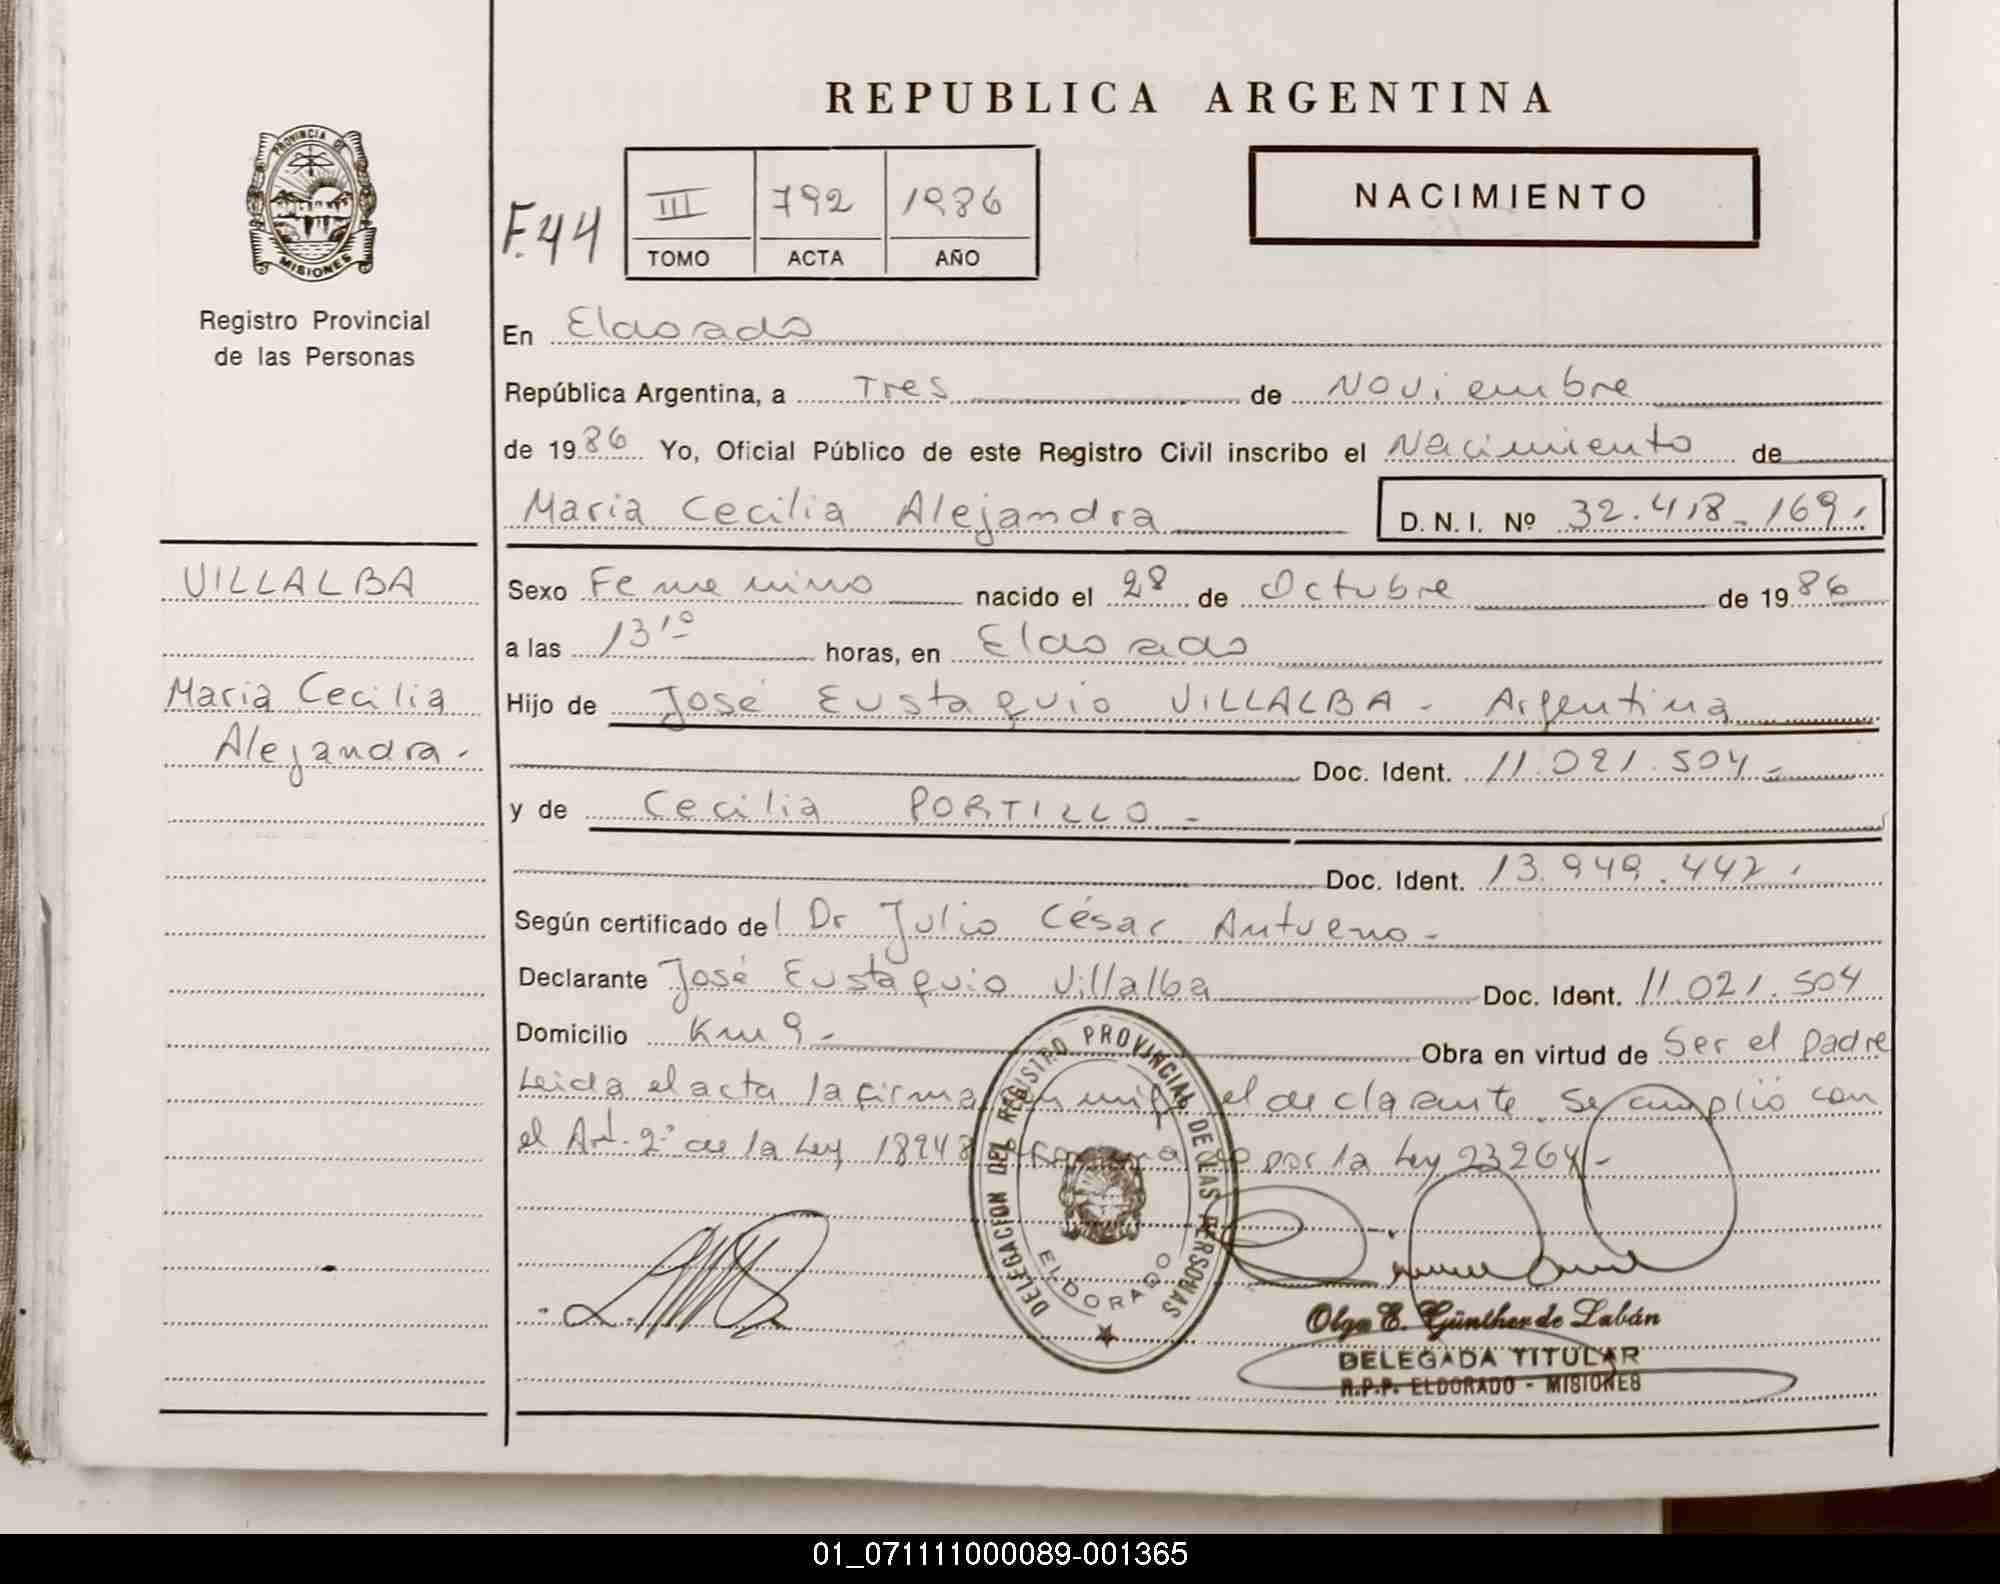 REPUBLICA ARGENTINA
PROVINCIA DE MISIONES
Registro Provincial
de las Personas
F.44
III 792 1986
TOMO ACTA AÑO
NACIMIENTO
En Eldorado
República Argentina, a Tres de Noviembre
de 1986 Yo, Oficial Público de este Registro Civil inscribo el Nacimiento de
Maria Cecilia Alejandra D.N.I. Nº 32.418.169.
VILLALBA
Maria Cecilia
Alejandra.
Sexo Femenino nacido el 28 de Octubre de 1986
a las 13,10 horas, en Eldorado
Hijo de José Eustaquio VILLALBA - Argentina
Doc. Ident. 11.021.504.-
y de Cecilia PORTILLO -
Doc. Ident. 13.949.442.
Según certificado del Dr Julio César Antueno-
Declarante José Eustaquio Villalba Doc. Ident. 11.021.504
Domicilio Km 9- Obra en virtud de Ser el padre
Leida el acta la firma el declarante. Se cumplió con
el Art. 2º de la Ley 18248 por la Ley 23264-
DELEGACION DEL REGISTRO PROVINCIAL DE LAS PERSONAS
ELDORADO
Olga E. Günther de Labán
DELEGADA TITULAR
R.P.P. ELDORADO - MISIONES
01_071111000089-001365